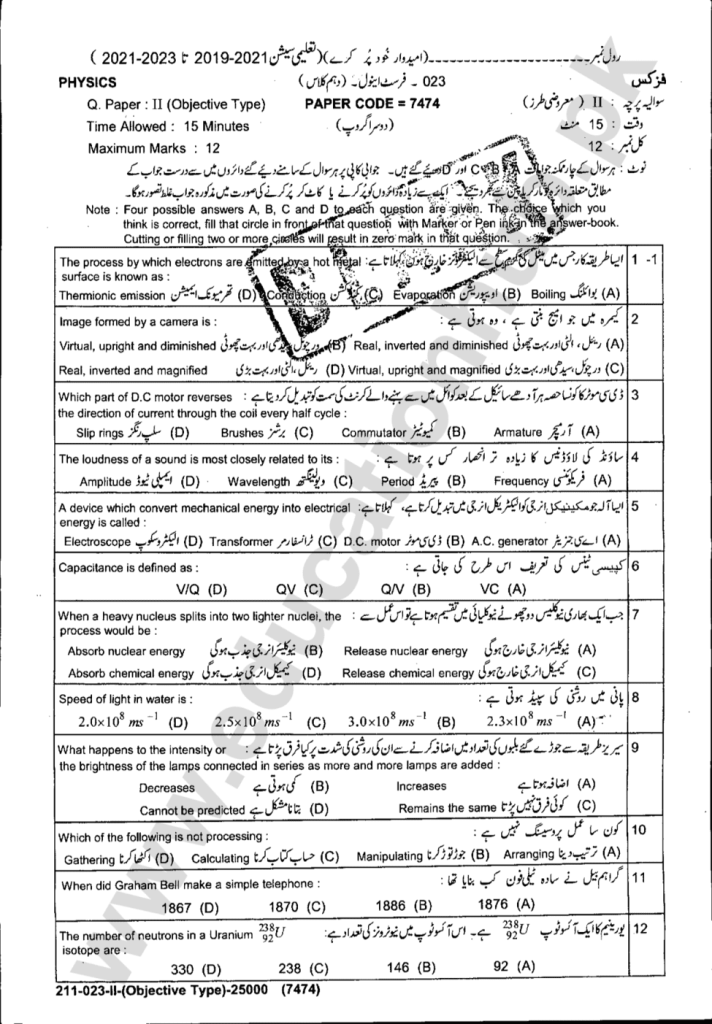 رول نمبر ---------------------- (امیدوار خود پُر کرے) (تعلیمی سیشن 2021-2019 تا 2023-2021 )
PHYSICS 023 - فرسٹ اینول - (دہم کلاس) فزکس
Q. Paper : II (Objective Type) PAPER CODE = 7474 سوالیہ پرچہ : II (معروضی طرز)
Time Allowed : 15 Minutes (دوسرا گروپ) وقت : 15 منٹ
Maximum Marks : 12 کل نمبر : 12
نوٹ : ہر سوال کے چار ممکنہ جوابات A ، B ، C اور D دیئے گئے ہیں۔ جوابی کاپی پر ہر سوال کے سامنے دیئے گئے دائروں میں سے درست جواب کے
مطابق متعلقہ دائرہ کو مارکر یا پین سے بھر دیجئے۔ ایک سے زیادہ دائروں کو پُر کرنے یا کاٹ کر پُر کرنے کی صورت میں مذکورہ جواب غلط تصور ہوگا۔
Note : Four possible answers A, B, C and D to each question are given. The choice which you
think is correct, fill that circle in front of that question with Marker or Pen ink in the answer-book.
Cutting or filling two or more circles will result in zero mark in that question.
1 -1 ایسا طریقہ کار جس میں میٹل کی گرم سطح سے الیکٹرونز خارج ہوں ، کہلاتا ہے : The process by which electrons are emitted by a hot metal
surface is known as :
Thermionic emission تھرمیونک ایمیشن (D) Conduction کنڈکشن (C) Evaporation ایویپوریشن (B) Boiling بوائلنگ (A)
Image formed by a camera is : کیمرہ میں جو امیج بنتی ہے ، وہ ہوتی ہے : 2
Virtual, upright and diminished ورچوئل، سیدھی اور بہت چھوٹی (B) Real, inverted and diminished رئیل، الٹی اور بہت چھوٹی (A)
Real, inverted and magnified رئیل، الٹی اور بہت بڑی (D) Virtual, upright and magnified ورچوئل، سیدھی اور بہت بڑی (C)
Which part of D.C motor reverses ڈی سی موٹر کا کونسا حصہ ہر آدھے سائیکل کے بعد کوائل میں سے بہنے والے کرنٹ کی سمت کو تبدیل کر دیتا ہے : 3
the direction of current through the coil every half cycle :
Slip rings سلپ رنگز (D) Brushes برشز (C) Commutator کمیوٹیٹر (B) Armature آرمیچر (A)
The loudness of a sound is most closely related to its : ساؤنڈ کی لاؤڈنیس کا زیادہ تر انحصار کس پر ہوتا ہے : 4
Amplitude ایمپلی ٹیوڈ (D) Wavelength ویولینگتھ (C) Period پیریڈ (B) Frequency فریکوئنسی (A)
A device which convert mechanical energy into electrical ایسا آلہ جو مکینیکل انرجی کو الیکٹریکل انرجی میں تبدیل کرتا ہے، کہلاتا ہے : 5
energy is called :
Electroscope الیکٹروسکوپ (D) Transformer ٹرانسفارمر (C) D.C. motor ڈی سی موٹر (B) A.C. generator اے سی جنریٹر (A)
Capacitance is defined as : کپیسی ٹینس کی تعریف اس طرح کی جاتی ہے : 6
V/Q (D) QV (C) Q/V (B) VC (A)
When a heavy nucleus splits into two lighter nuclei, the جب ایک بھاری نیوکلیس دو چھوٹے نیوکلیائی میں تقسیم ہوتا ہے تو اس عمل سے : 7
process would be :
Absorb nuclear energy نیوکلیئر انرجی جذب ہوگی (B) Release nuclear energy نیوکلیئر انرجی خارج ہوگی (A)
Absorb chemical energy کیمیکل انرجی جذب ہوگی (D) Release chemical energy کیمیکل انرجی خارج ہوگی (C)
Speed of light in water is : پانی میں روشنی کی سپیڈ ہوتی ہے : 8
2.0×10⁸ ms⁻¹ (D) 2.5×10⁸ ms⁻¹ (C) 3.0×10⁸ ms⁻¹ (B) 2.3×10⁸ ms⁻¹ (A)
What happens to the intensity or سیریز طریقہ سے جوڑے گئے بلبوں کی تعداد میں اضافہ کرنے سے ان کی روشنی کی شدت پر کیا فرق پڑتا ہے : 9
the brightness of the lamps connected in series as more and more lamps are added :
Decreases کمی ہوتی ہے (B) Increases اضافہ ہوتا ہے (A)
Cannot be predicted بتانا مشکل ہے (D) Remains the same کوئی فرق نہیں پڑتا (C)
Which of the following is not processing : کون سا عمل پروسیسنگ نہیں ہے : 10
Gathering اکٹھا کرنا (D) Calculating حساب کتاب کرنا (C) Manipulating جوڑ توڑ کرنا (B) Arranging ترتیب دینا (A)
When did Graham Bell make a simple telephone : گراہم بیل نے سادہ ٹیلی فون کب بنایا تھا : 11
1867 (D) 1870 (C) 1886 (B) 1876 (A)
The number of neutrons in a Uranium ²³⁸₉₂U یورینیم کا ایک آئسوٹوپ ²³⁸₉₂U ہے۔ اس آئسوٹوپ میں نیوٹرونز کی تعداد ہے : 12
isotope are :
330 (D) 238 (C) 146 (B) 92 (A)
211-023-II-(Objective Type)-25000 (7474)